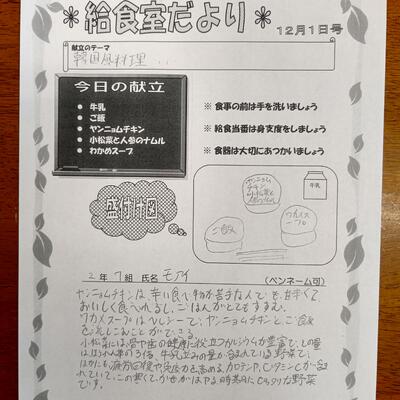 ＊給食室だより＊
12月1日号
献立のテーマ
韓国風料理
今日の献立
● 牛乳
● ご飯
● ヤンニョムチキン
● 小松菜と人参のナムル
● わかめスープ
※ 食事の前は手を洗いましょう
※ 給食当番は身支度をしましょう
※ 食器は大切にあつかいましょう
盛付け図
ヤンニョム
チキン
小松菜と
人参のナムル
牛乳
ご飯
ワカメス
ープ
2年 7組 氏名 モアイ (ペンネーム可)
ヤンニョムチキンは、辛い食べ物が苦手な人でも、甘辛くて、
おいしく食べれるし、ごはんがとてもすすむ。
ワカメスープはヘルシーで、ヤンニョムチキンと、ご飯
を流しこむことができる。
小松菜には、骨や歯の健康に役立つカルシウムが豊富で、その量
はほうれん草の3倍、牛乳並みの量が含まれている野菜で、
ほかにも、疲労回復や免疫力を高める、カロテンや、ビタミンCが含
れていて、この寒くて、かぜがはやる時期にピッタリな野菜
です。